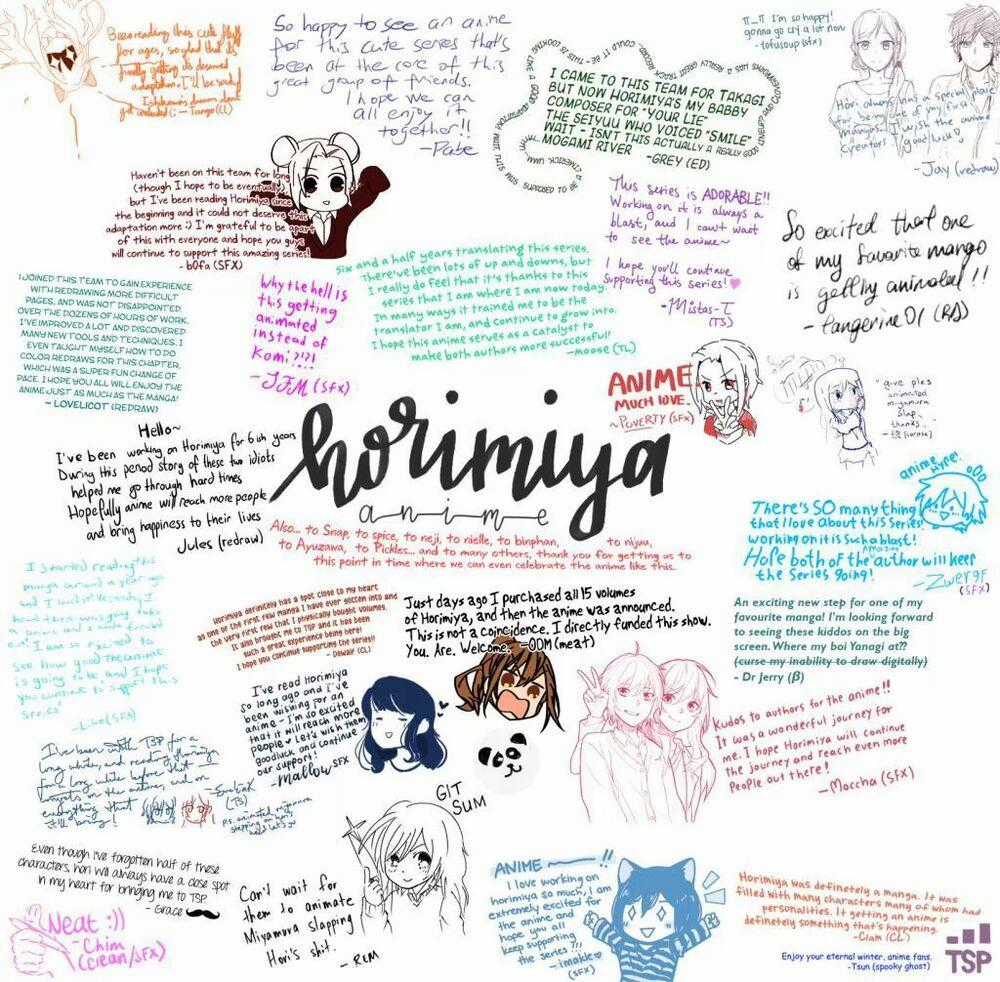 Been reading this cute fluff
for ages, so glad that it's
finally getting its deserved
adaptation. I'll be
- Tango (CL)
So happy to see an anime
for this cute series that's
been at the core of this
great group of friends.
I hope we can
all enjoy it
together!!
- Pabe
I CAME TO THIS TEAM FOR TAKAGI
BUT NOW HORIMIYA'S MY BABBY
COMPOSER FOR "YOUR LIE"
THE SEIYUU WHO VOICED "SMILE"
WAIT - ISN'T THIS ACTUALLY A REALLY GOOD
MOGAMI RIVER -GREY (ED)
π_π I'm so happy!
gonna go cry a lot now
- tofusoup (sfx)
Hori always has a special place
for being one of my first
mangas. I wish the anime
creators good luck
- Jay (redraw)
Haven't been on this team for long
(though I hope to be eventually),
but I've been reading Horimiya since
the beginning and it could not deserve this
adaptation more :) I'm grateful to be apart
of this with everyone and hope you guys
will continue to support this amazing series!
- b0fa (SFX)
This series is ADORABLE!!
Working on it is always a
blast, and I can't wait
to see the anime~
I hope you'll continue
supporting this series!
- Mistas-T
(TS)
So excited that one
of my favourite mango
is getting animated!!
- tangerine01 (RD)
I JOINED THIS TEAM TO GAIN EXPERIENCE
WITH REDRAWING MORE DIFFICULT
PAGES, AND WAS NOT DISAPPOINTED.
OVER THE DOZENS OF HOURS OF WORK,
I'VE IMPROVED A LOT AND DISCOVERED
MANY NEW TOOLS AND TECHNIQUES. I
EVEN TAUGHT MYSELF HOW TO DO
COLOR REDRAWS FOR THIS CHAPTER,
WHICH WAS A SUPER FUN CHANGE OF
PACE. I HOPE YOU ALL WILL ENJOY THE
ANIME JUST AS MUCH AS THE MANGA!
~ LOVELICOT (REDRAW)
Why the hell is
this getting
animated
instead of
Komi?!?!
- JFM (SFX)
Six and a half years translating this series.
There've been lots of up and downs, but
I really do feel that it's thanks to this
series that I am where I am now today.
In many ways it trained me to be the
translator I am, and continue to grow into.
I hope this anime serves as a catalyst to
make both authors more successful!
-moose (TL)
ANIME
MUCH LOVE.
~ POVERTY (SFX)
give ples
animated
miyamura
slap
thanks.
Hello~
I've been working on Horimiya for 6 ish years
During this period story of these two idiots
helped me go through hard times
Hopefully anime will reach more people
and bring happiness to their lives
Jules (redraw)
horimiya
anime
Also... to Snap, to spice, to neji, to nielle, to binphan, to niyuu,
to Ayuzawa, to Pickles... and to many others, thank you for getting us to
this point in time where we can even celebrate the anime like this.
anime hype!
There's SO many thing
that I love about this Series!
working on it is such a blast!
Hope both of the Amazing author will keep
the Series going!
- Zwergf
(SFX)
I started reading this
manga around a year ago
and I
I am so excited to
see how good the anime
is going to be and I hope
you continue to support this
series
Horimiya definitely has a spot close to my heart
as one of the first few manga I have ever gotten into and
the very first few that I physically bought volumes.
It also brought me to TSP and it has been
such a great experience being here!
I hope you continue supporting the series!!
- Deway (CL)
Just days ago I purchased all 15 volumes
of Horimiya, and then the anime was announced.
This is not a coincidence. I directly funded this show.
You. Are. Welcome. -OOM (meat)
An exciting new step for one of my
favourite manga! I'm looking forward
to seeing these kiddos on the big
screen. Where my boi Yanagi at??
(curse my inability to draw digitally)
- Dr Jerry (β)
I've read Horimiya
so long ago and I've
been wishing for an
anime - I'm so excited
that it will reach more
people Let's wish them
goodluck and continue
our support!
- Mallow SFX
Kudos to authors for the anime!!
It was a wonderful journey for
me. I hope Horimiya will continue
the journey and reach even more
People out there!
-Moccha (SFX)
I've been with TSP for a
long while, and reading Horimiya
for a long while before that -
everything that
(TS)
p.s. animated miyamura
stepping on hori
GIT
SUM
Even though I've forgotten half of these
characters, hori will always have a close spot
in my heart for bringing me to TSP
- Grace
Neat :))
- Chim
(clean/SFX)
Can't wait for
them to animate
Miyamura slapping
Hori's shit.
- RCM
ANIME ~~ !!
I love working on
horimiya so much, I am
extremely excited for
the anime and
hope you all
keep supporting
the series !!!
- imakle
(SFX)
Horimiya was definetely a manga. It was
filled with many characters many of whom had
personalities. It getting an anime is
definetely something that's happening.
-Clam (CL)
Enjoy your eternal winter, anime fans.
-Tsun (spooky ghost)
TSP